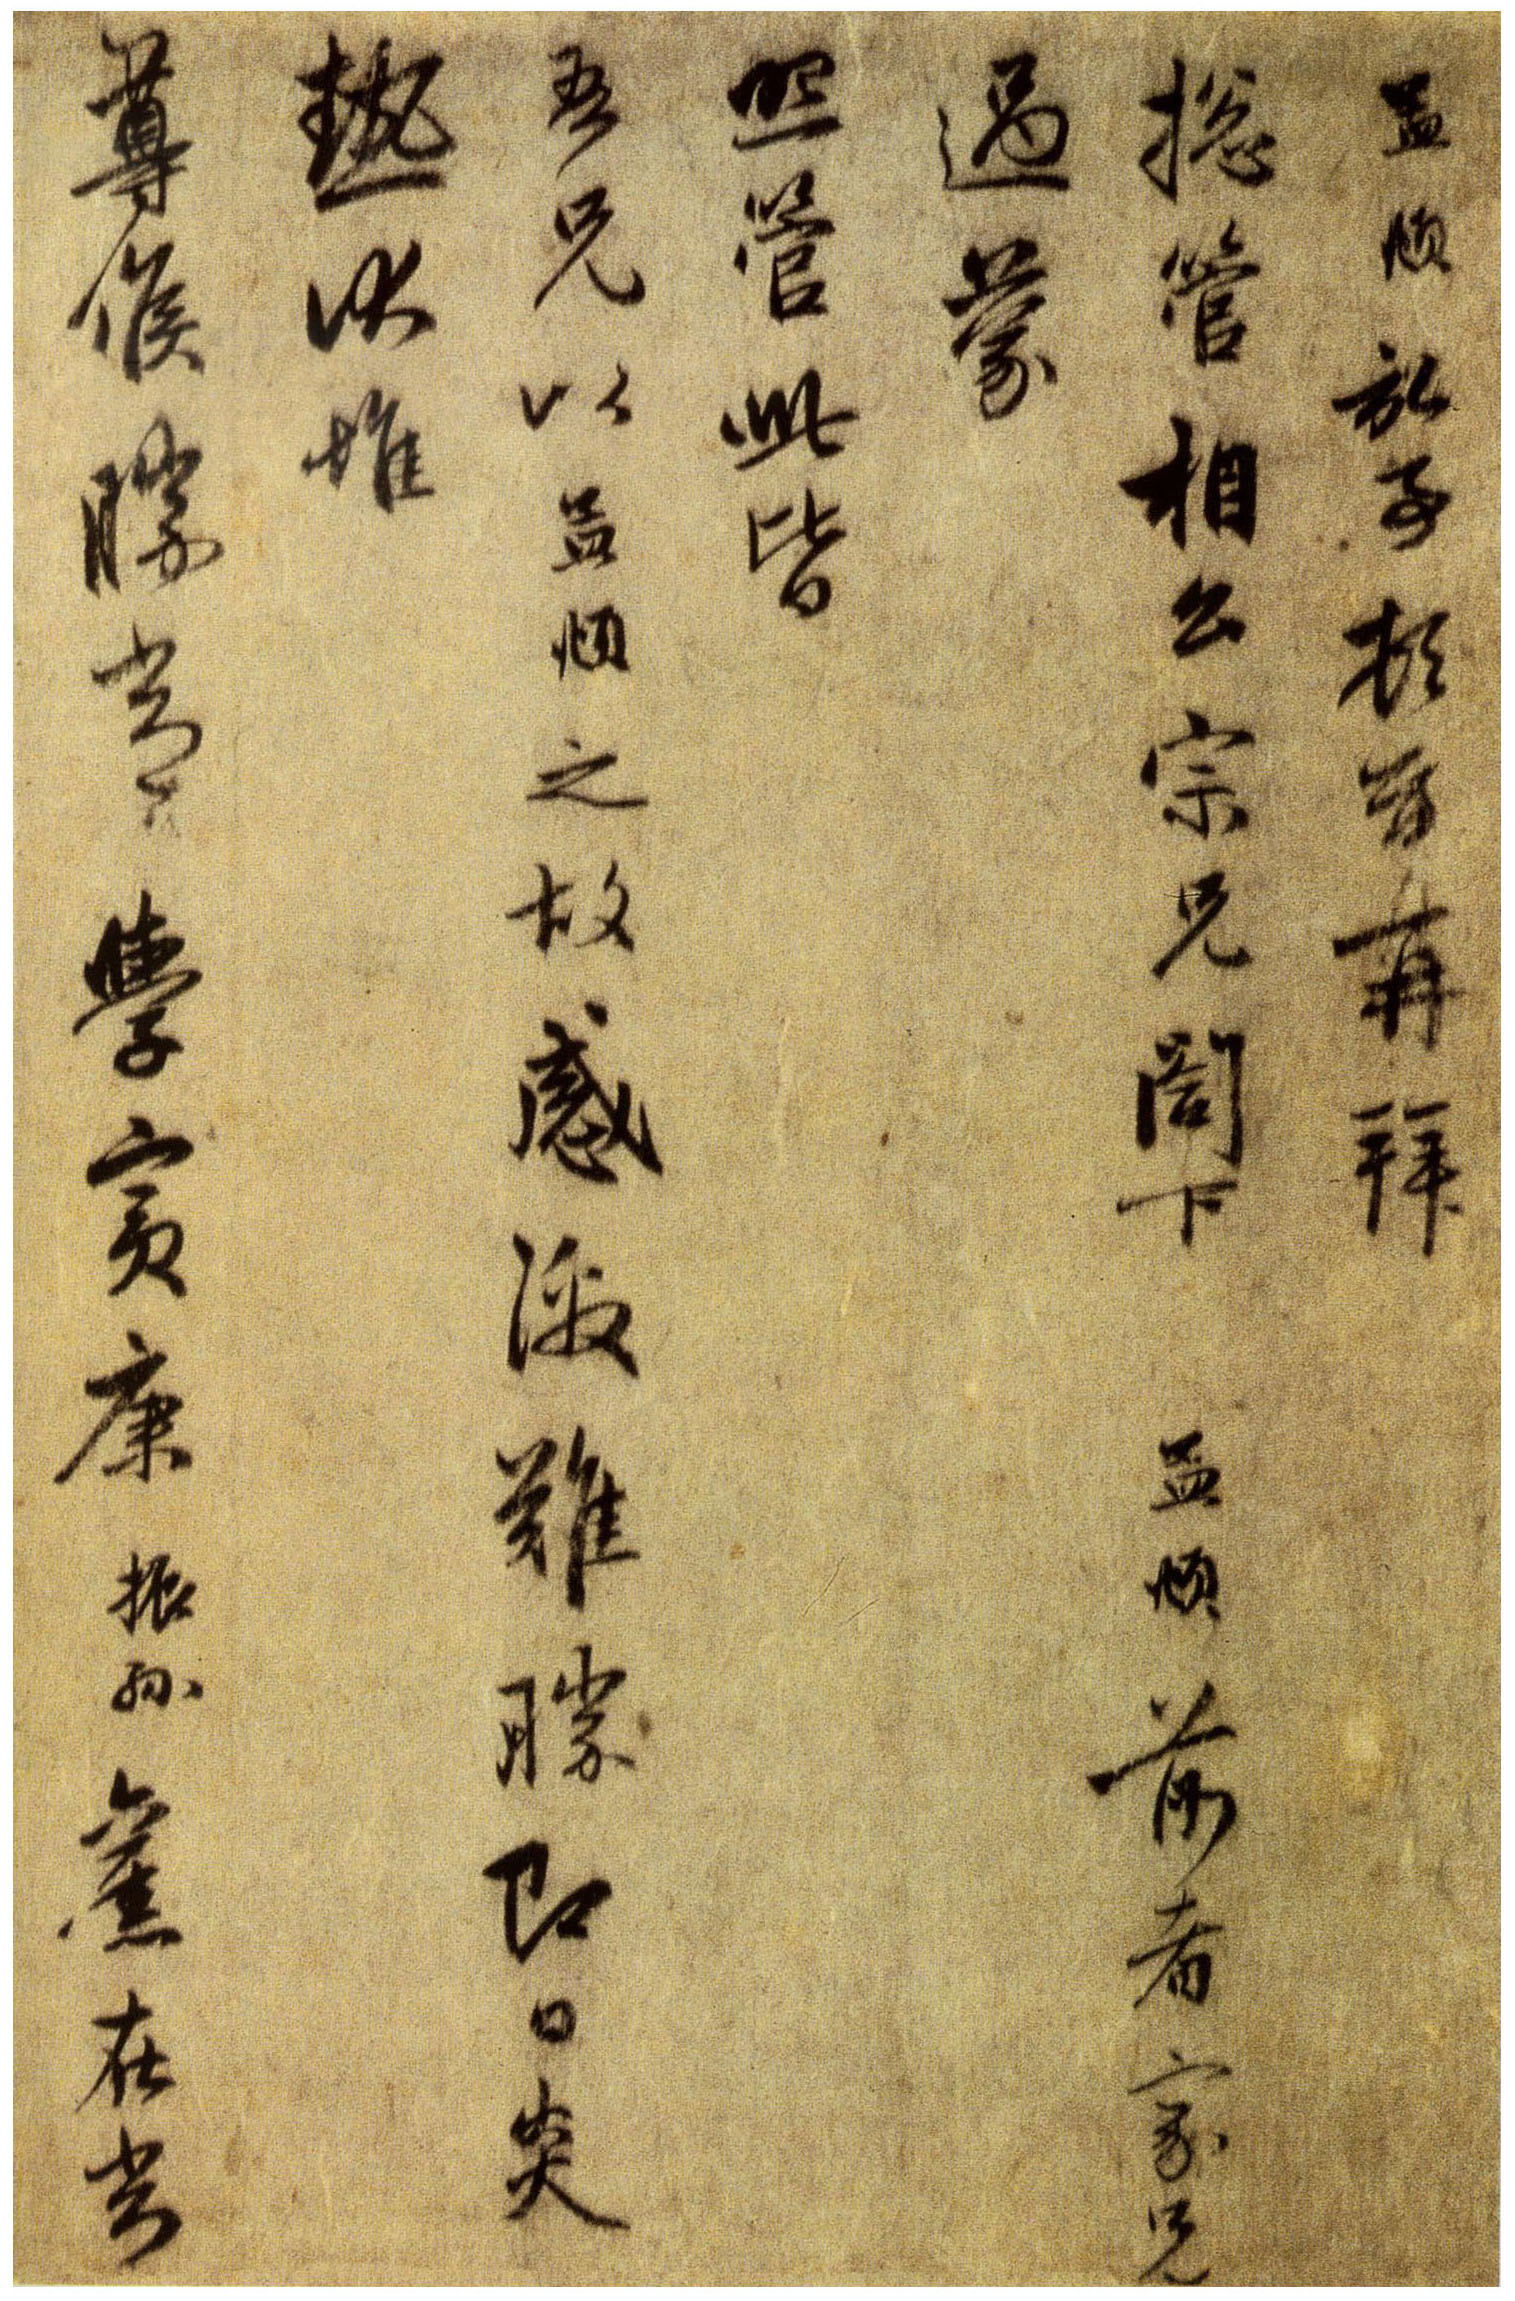 孟頫記事頓首再拜
總管相公宗兄閤下 孟頫前者家兄
過蒙
照管此皆
吾兄以孟頫之故感激難勝即日炎
熱伏惟
尊候勝常學賓康振孫舊在常